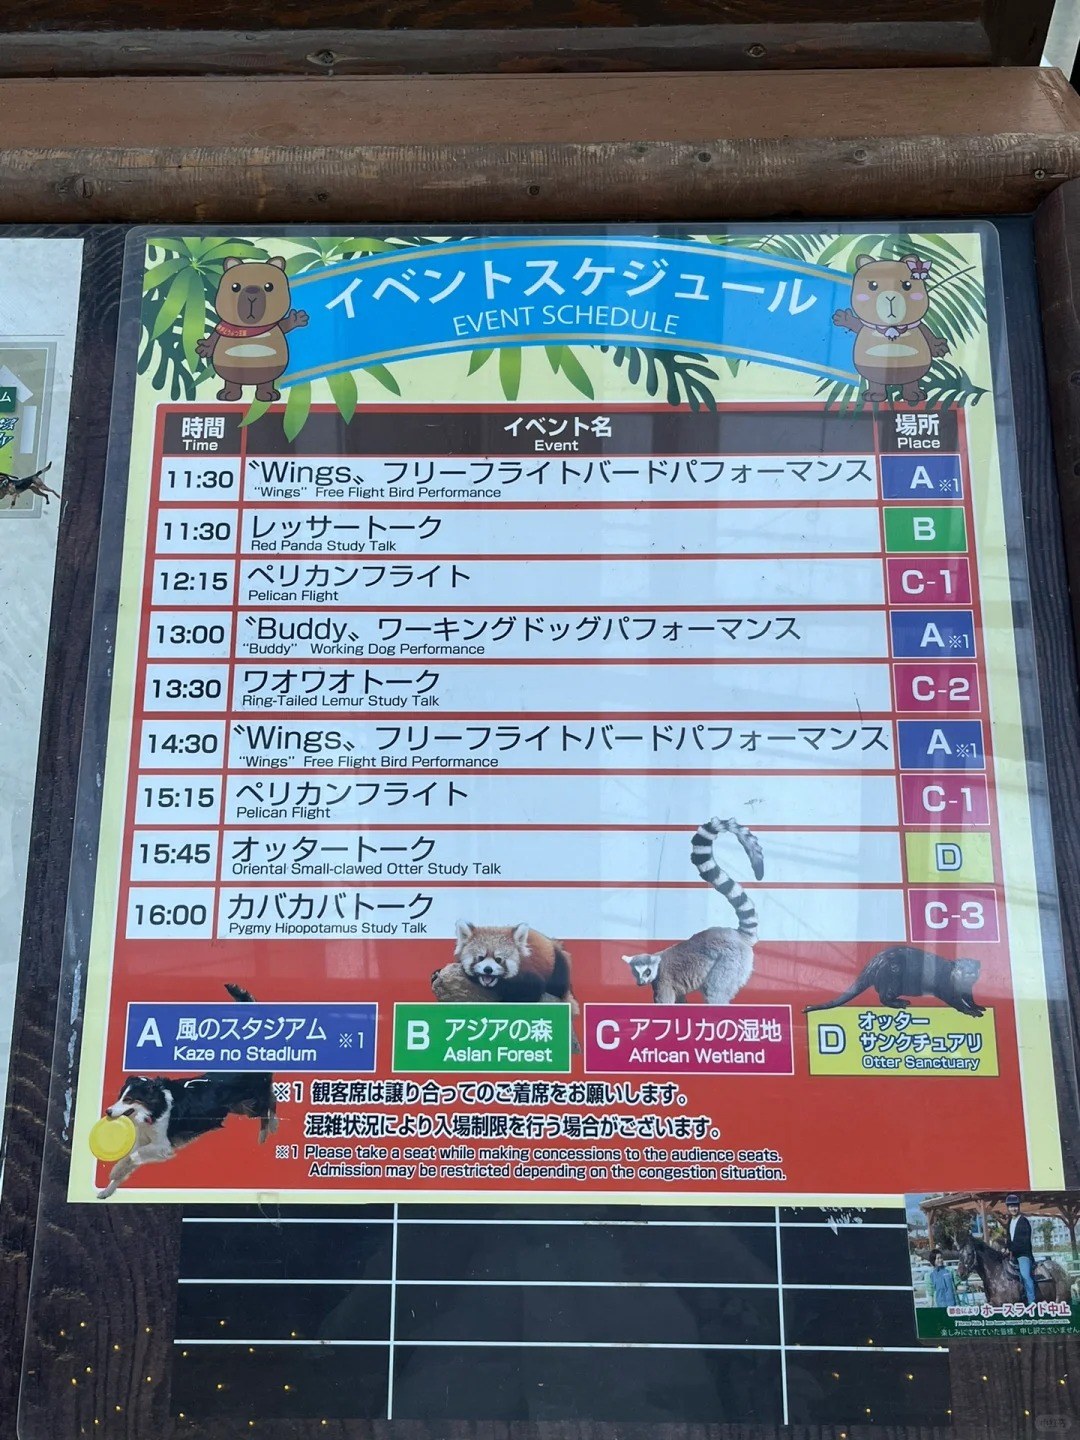 イベントスケジュール
EVENT SCHEDULE
時間 イベント名 場所
Time Event Place
11:30 〝Wings〟フリーフライトバードパフォーマンス A※1
“Wings” Free Flight Bird Performance
11:30 レッサートーク B
Red Panda Study Talk
12:15 ペリカンフライト C-1
Pelican Flight
13:00 〝Buddy〟ワーキングドッグパフォーマンス A※1
“Buddy” Working Dog Performance
13:30 ワオワオトーク C-2
Ring-Tailed Lemur Study Talk
14:30 〝Wings〟フリーフライトバードパフォーマンス A※1
“Wings” Free Flight Bird Performance
15:15 ペリカンフライト C-1
Pelican Flight
15:45 オッタートーク D
Oriental Small-clawed Otter Study Talk
16:00 カバカバトーク C-3
Pygmy Hipopotamus Study Talk
A 風のスタジアム ※1
Kaze no Stadium
B アジアの森
Asian Forest
C アフリカの湿地
African Wetland
D オッター
サンクチュアリ
Otter Sanctuary
※1 観客席は譲り合ってのご着席をお願いします。
混雑状況により入場制限を行う場合がございます。
※1 Please take a seat while making concessions to the audience seats.
Admission may be restricted depending on the congestion situation.
都合により ホースライド中止
楽しみにされていた皆様、申し訳ございません